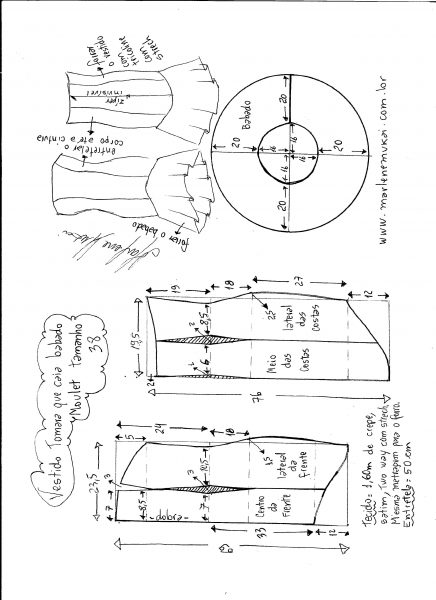 Vestido Tomara que caia babado
Moulet tamanho
38
forrar
o vestido
com
tricoline
com
strech
zíper
invisível
entretelar o
corpo até a cintura
forrar o babado
Babado
20
20
20
20
16
16
16
16
www.marlenemukai.com.br
19
18
27
12
19,5
2
8,5
2
6
2,5
lateral
das
costas
Meio
das
costas
76
24
5
18
23,5
3
7
8,5
10,5
3
7
3,5
lateral
da
frente
Centro
da
Frente
33
12
Tecido= 1,60m de crepe,
satim, Two way com strech.
Mesma metragem para o forro.
Entretela= 50 cm